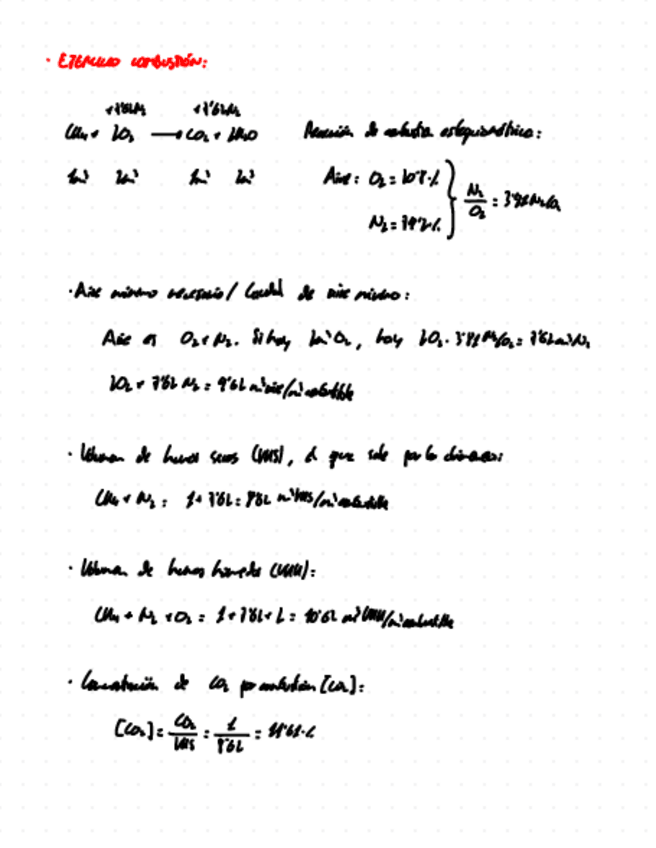 · EJERCICIO COMBUSTIÓN:
CH4 + 2O2 → CO2 + 2H2O Reacción de combustión estequiométrica:
1m³ 2m³ 1m³ 2m³ Aire: O2 =
N2 = 79'2%
N2/O2 =
· Aire mínimo necesario / Caudal de aire mínimo:
Aire es O2 + N2. Si hay 2m³ O2, hay
2O2 + 7'62 N2 = 9'62 m³ aire/m³ combustible
· Volumen de humos secos (VHS), el que sale por la chimenea:
CH4 + N2 : 1 + 7'62 = 8'62 m³ VHS/m³ combustible
· Volumen de humos húmedos (VHH):
CH4 + N2 + O2 = 1 + 7'62 + 2 = 10'62 m³ VHH/m³ combustible
· Concentración de CO2 por combustión [CO2]:
[CO2] = CO2/VHS = 1/8'62 = 11'61%